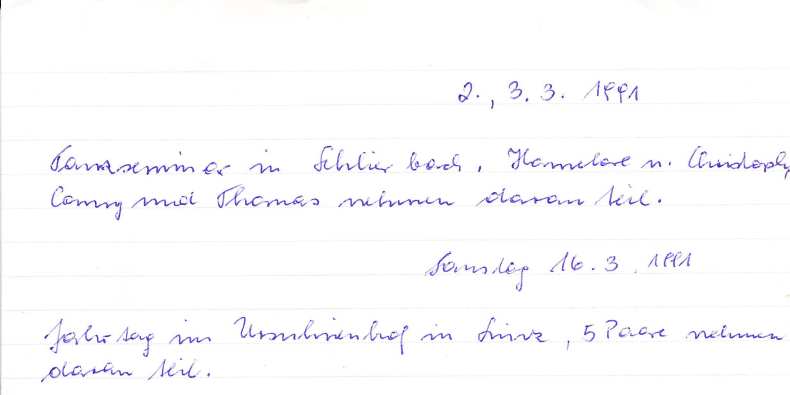 2., 3.3. 1991
Tanzseminar in Schlierbach, Hannelore u. Christoph,
Conny und Thomas nehmen daran teil.
Samstag 16.3.1991
Jahrtag im Ursulinenhof in Linz, 5 Paare nehmen
daran teil.